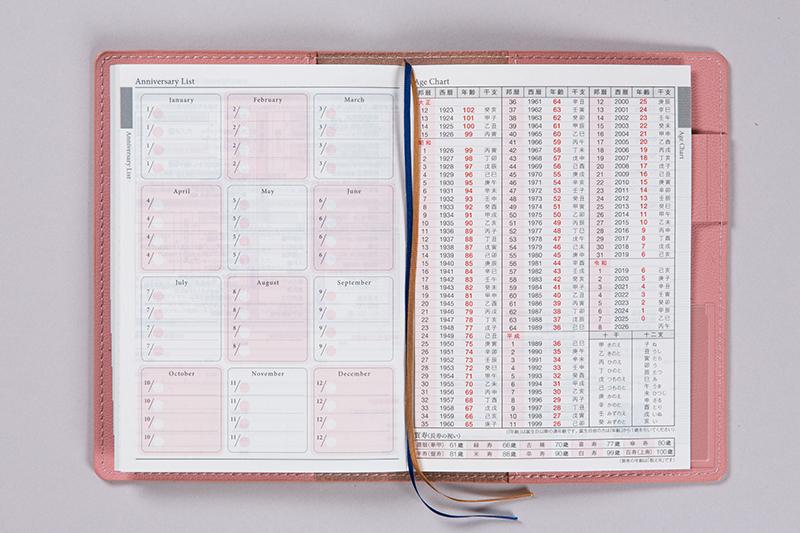 Anniversary List
Anniversary List
January
1/
1/
1/
1/
February
2/
2/
2/
2/
March
3/
3/
3/
3/
April
4/
4/
4/
4/
May
5/
5/
5/
5/
June
6/
6/
6/
6/
July
7/
7/
7/
7/
August
8/
8/
8/
8/
September
9/
9/
9/
9/
October
10/
10/
10/
10/
November
11/
11/
11/
11/
December
12/
12/
12/
12/
Age Chart
Age Chart
邦暦 西暦 年齢 干支
大正
12 1923 102 癸亥
13 1924 101 甲子
14 1925 100 乙丑
15 1926 99 丙寅
昭和
1 1926 99 丙寅
2 1927 98 丁卯
3 1928 97 戊辰
4 1929 96 己巳
5 1930 95 庚午
6 1931 94 辛未
7 1932 93 壬申
8 1933 92 癸酉
9 1934 91 甲戌
10 1935 90 乙亥
11 1936 89 丙子
12 1937 88 丁丑
13 1938 87 戊寅
14 1939 86 己卯
15 1940 85 庚辰
16 1941 84 辛巳
17 1942 83 壬午
18 1943 82 癸未
19 1944 81 甲申
20 1945 80 乙酉
21 1946 79 丙戌
22 1947 78 丁亥
23 1948 77 戊子
24 1949 76 己丑
25 1950 75 庚寅
26 1951 74 辛卯
27 1952 73 壬辰
28 1953 72 癸巳
29 1954 71 甲午
30 1955 70 乙未
31 1956 69 丙申
32 1957 68 丁酉
33 1958 67 戊戌
34 1959 66 己亥
35 1960 65 庚子
邦暦 西暦 年齢 干支
36 1961 64 辛丑
37 1962 63 壬寅
38 1963 62 癸卯
39 1964 61 甲辰
40 1965 60 乙巳
41 1966 59 丙午
42 1967 58 丁未
43 1968 57 戊申
44 1969 56 己酉
45 1970 55 庚戌
46 1971 54 辛亥
47 1972 53 壬子
48 1973 52 癸丑
49 1974 51 甲寅
50 1975 50 乙卯
51 1976 49 丙辰
52 1977 48 丁巳
53 1978 47 戊午
54 1979 46 己未
55 1980 45 庚申
56 1981 44 辛酉
57 1982 43 壬戌
58 1983 42 癸亥
59 1984 41 甲子
60 1985 40 乙丑
61 1986 39 丙寅
62 1987 38 丁卯
63 1988 37 戊辰
64 1989 36 己巳
平成
1 1989 36 己巳
2 1990 35 庚午
3 1991 34 辛未
4 1992 33 壬申
5 1993 32 癸酉
6 1994 31 甲戌
7 1995 30 乙亥
8 1996 29 丙子
9 1997 28 丁丑
10 1998 27 戊寅
11 1999 26 己卯
邦暦 西暦 年齢 干支
12 2000 25 庚辰
13 2001 24 辛巳
14 2002 23 壬午
15 2003 22 癸未
16 2004 21 甲申
17 2005 20 乙酉
18 2006 19 丙戌
19 2007 18 丁亥
20 2008 17 戊子
21 2009 16 己丑
22 2010 15 庚寅
23 2011 14 辛卯
24 2012 13 壬辰
25 2013 12 癸巳
26 2014 11 甲午
27 2015 10 乙未
28 2016 9 丙申
29 2017 8 丁酉
30 2018 7 戊戌
31 2019 6 己亥
令和
1 2019 6 己亥
2 2020 5 庚子
3 2021 4 辛丑
4 2022 3 壬寅
5 2023 2 癸卯
6 2024 1 甲辰
7 2025 0 乙巳
8 2026 丙午
十干 十二支
甲 きのえ
乙 きのと
丙 ひのえ
丁 ひのと
戊 つちのえ
己 つちのと
庚 かのえ
辛 かのと
壬 みずのえ
癸 みずのと
子 ね
丑 うし
寅 とら
卯 う
辰 たつ
巳 み
午 うま
未 ひつじ
申 さる
酉 とり
戌 いぬ
亥 い
賀寿(長寿の祝い)
還暦(華甲) 61歳 緑寿 66歳 古稀 70歳 喜寿 77歳 傘寿 80歳
半寿(盤寿) 81歳 米寿 88歳 卒寿 90歳 白寿 99歳 百寿(上寿) 100歳